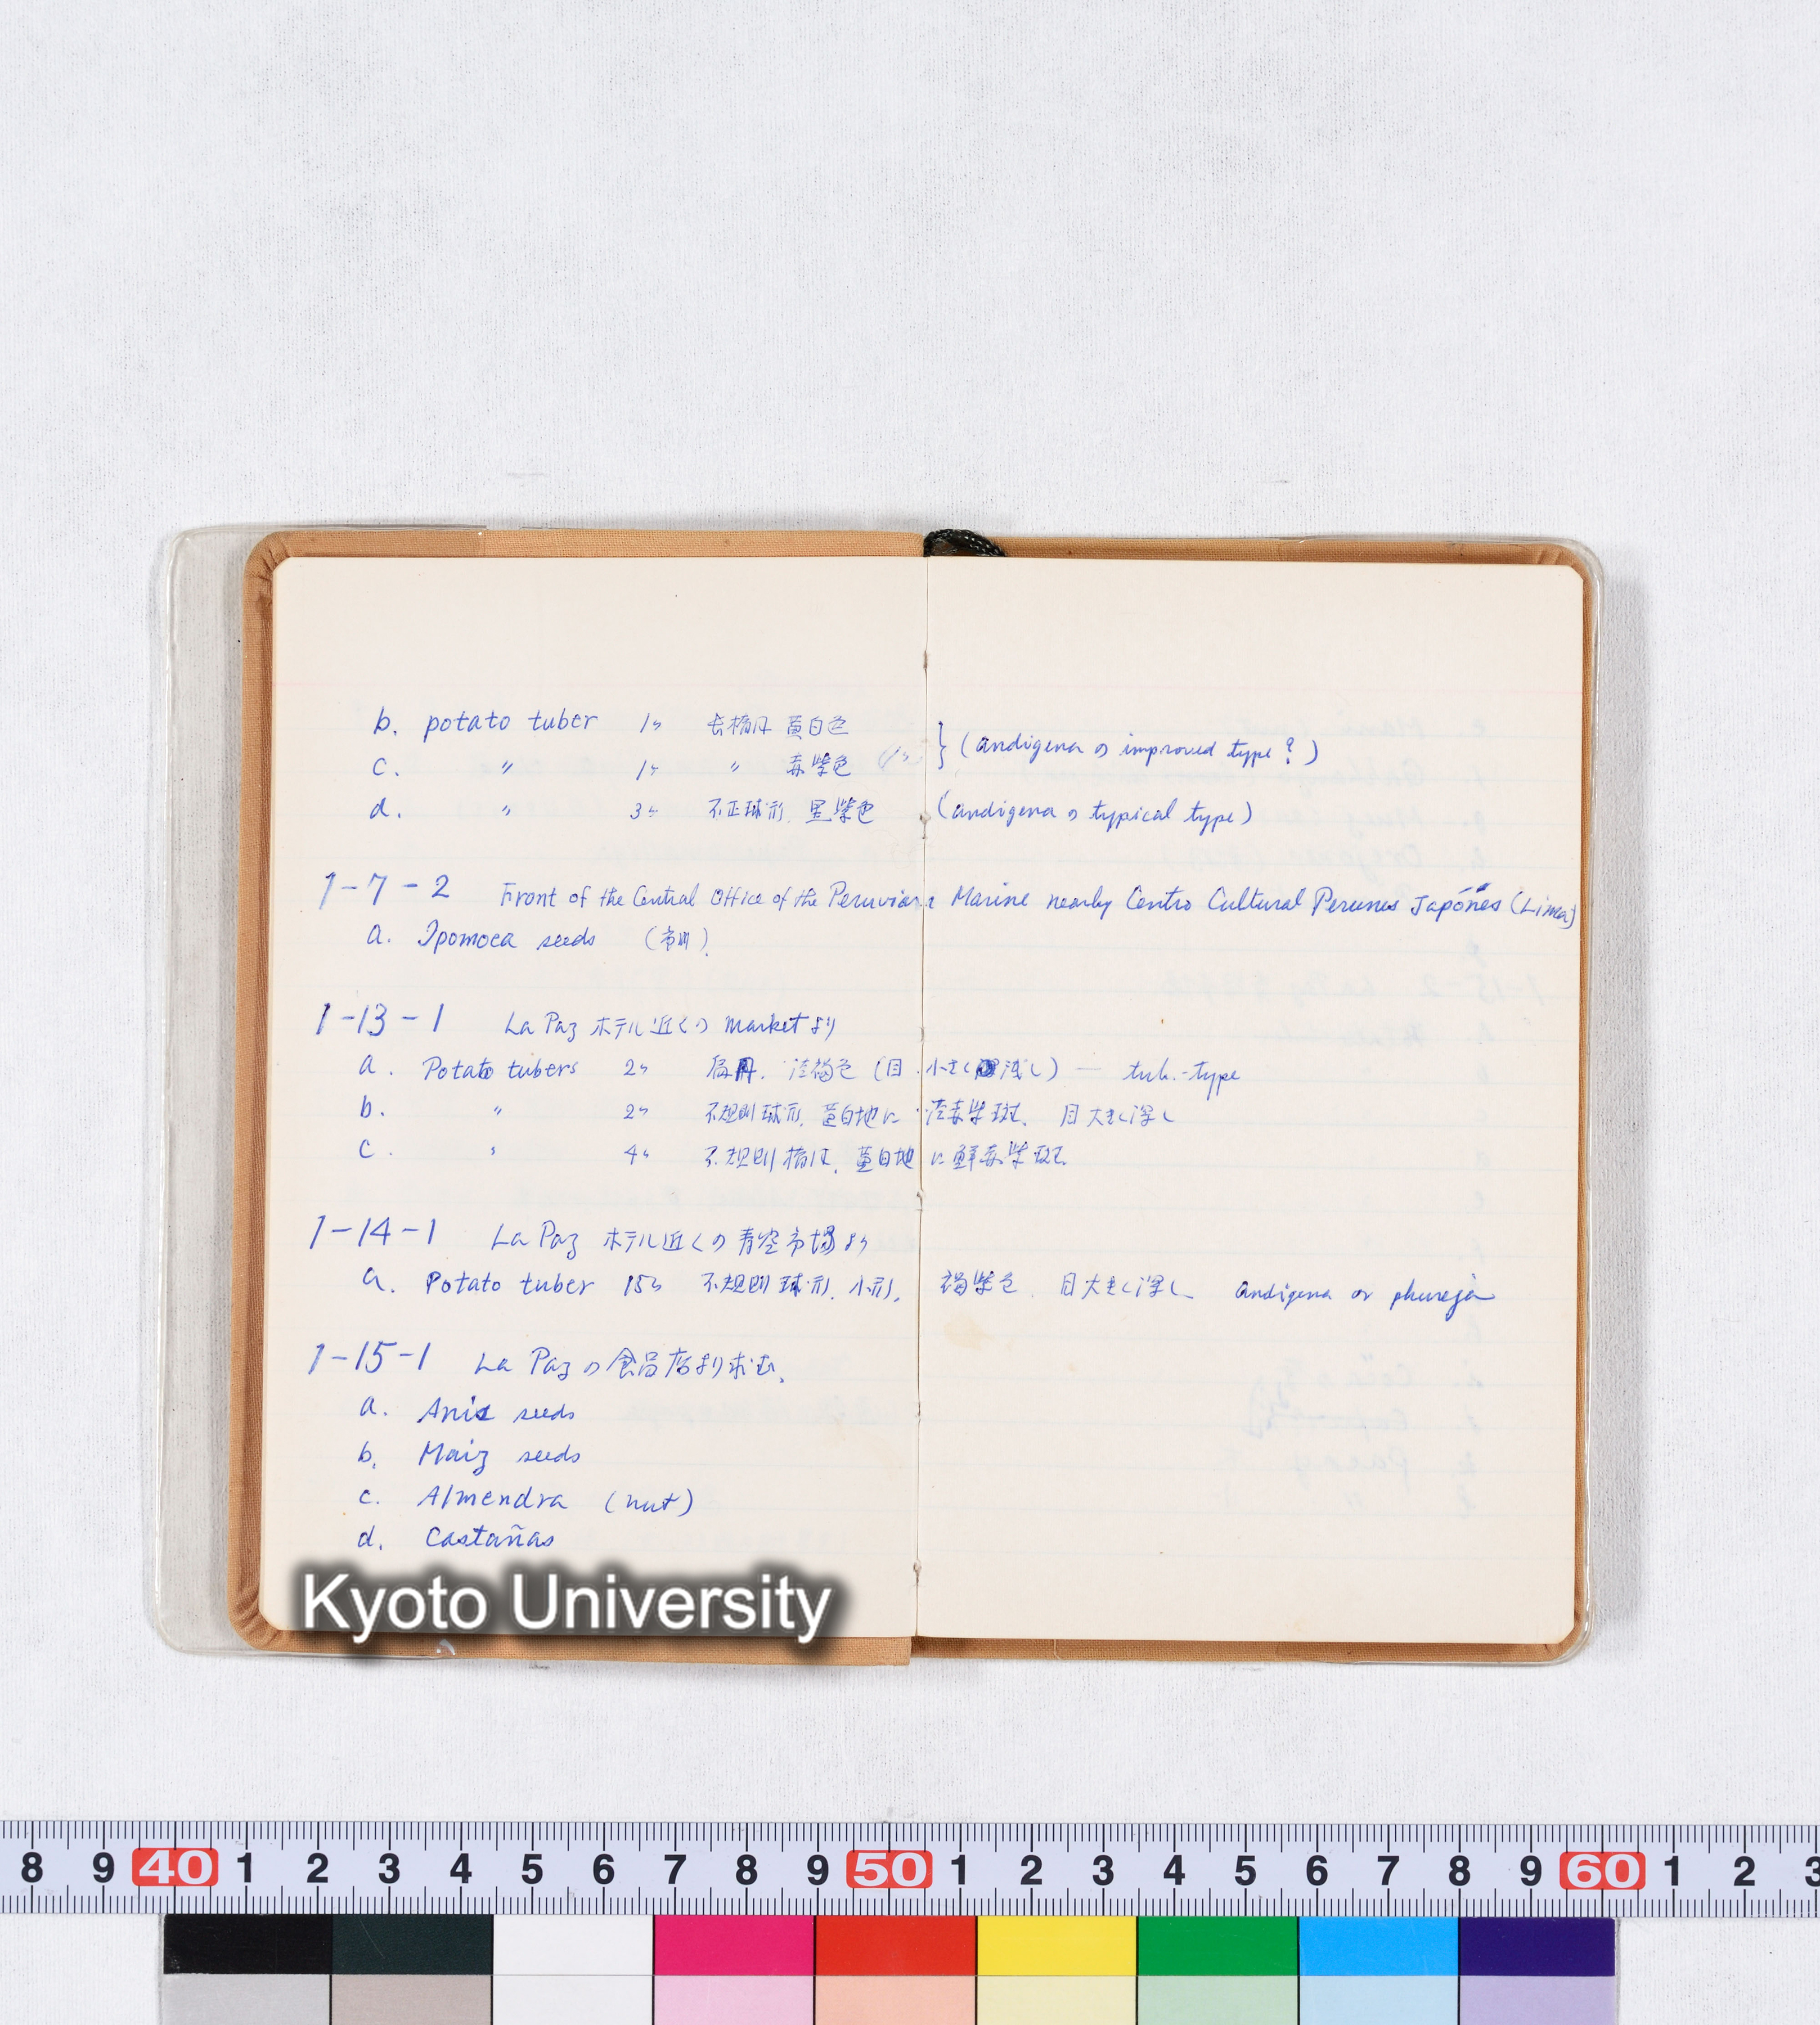 b. potato tuber 1ヶ 長楕円 黄白色
c. 〃 1ヶ 〃 赤紫色 } (andigena の improved type?)
d. 〃 3ヶ 不正球形. 黒紫色 (andigena の typical type)
1-7-2 Front of the Central Office of the Peruvian Marine nearby Centro Cultural Perunes Japónes (Lima)
a. Ipomoea seeds
1-13-1 La Paz ホテル近くの market より
a. Potato tubers 2ヶ 扁円. 淡褐色 (目 小さく浅し) — tub.-type
b. 〃 2ヶ 不規則球形, 黄白地に 淡赤紫斑. 目大きく深し
c. 〃 4ヶ 不規則楕円, 黄白地に鮮赤紫斑
1-14-1 La Paz ホテル近くの青空市場より
a. Potato tuber 15ヶ 不規則球形, 小形, 褐紫色. 目大きく深し andigena or phureja
1-15-1 La Paz の食品店より求む.
a. Anis seeds
b. Maiz seeds
c. Almendra (nut)
d. Castañas
Kyoto University
8 9 40 1 2 3 4 5 6 7 8 9 50 1 2 3 4 5 6 7 8 9 60 1 2 3